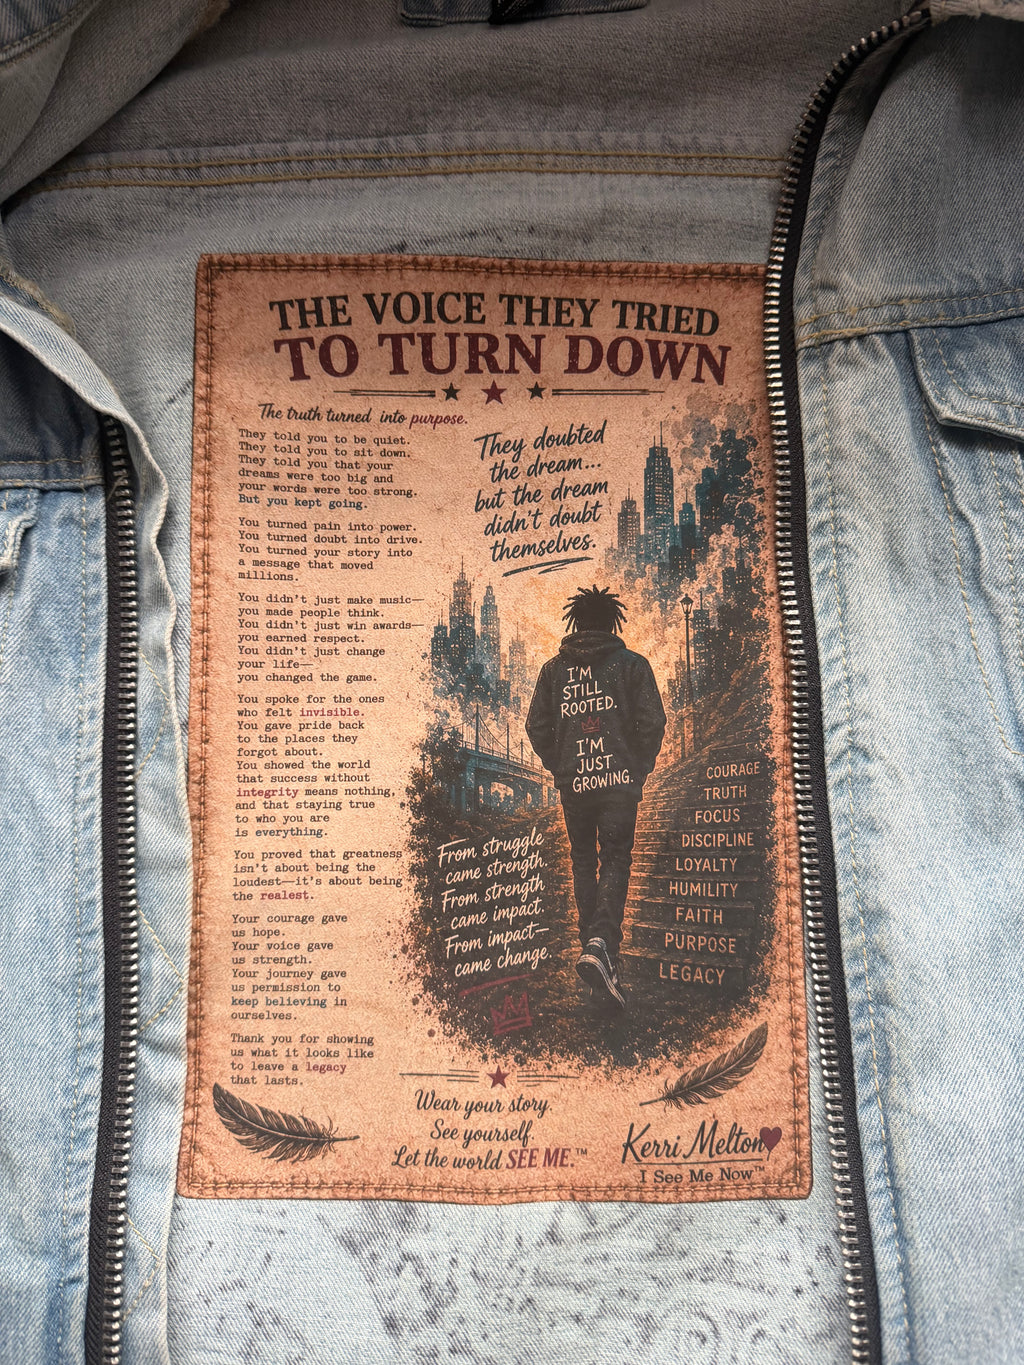 THE VOICE THEY TRIED
TO TURN DOWN
The truth turned into purpose.
They told you to be quiet.
They told you to sit down.
They told you that your
dreams were too big and
your words were too strong.
But you kept going.
You turned pain into power.
You turned doubt into drive.
You turned your story into
a message that moved
millions.
You didn't just make music—
you made people think.
You didn't just win awards—
you earned respect.
You didn't just change
your life—
you changed the game.
You spoke for the ones
who felt invisible.
You gave pride back
to the places they
forgot about.
You showed the world
that success without
integrity means nothing,
and that staying true
to who you are
is everything.
You proved that greatness
isn't about being the
loudest—it's about being
the realest.
Your courage gave
us hope.
Your voice gave
us strength.
Your journey gave
us permission to
keep believing in
ourselves.
Thank you for showing
us what it looks like
to leave a legacy
that lasts.
They doubted
the dream...
but the dream
didn't doubt
themselves.
I'M
STILL
ROOTED.
I'M
JUST
GROWING.
From struggle
came strength.
From strength
came impact.
From impact—
came change.
COURAGE
TRUTH
FOCUS
DISCIPLINE
LOYALTY
HUMILITY
FAITH
PURPOSE
LEGACY
Wear your story.
See yourself.
Let the world SEE ME.™
Kerri Melton
I See Me Now™